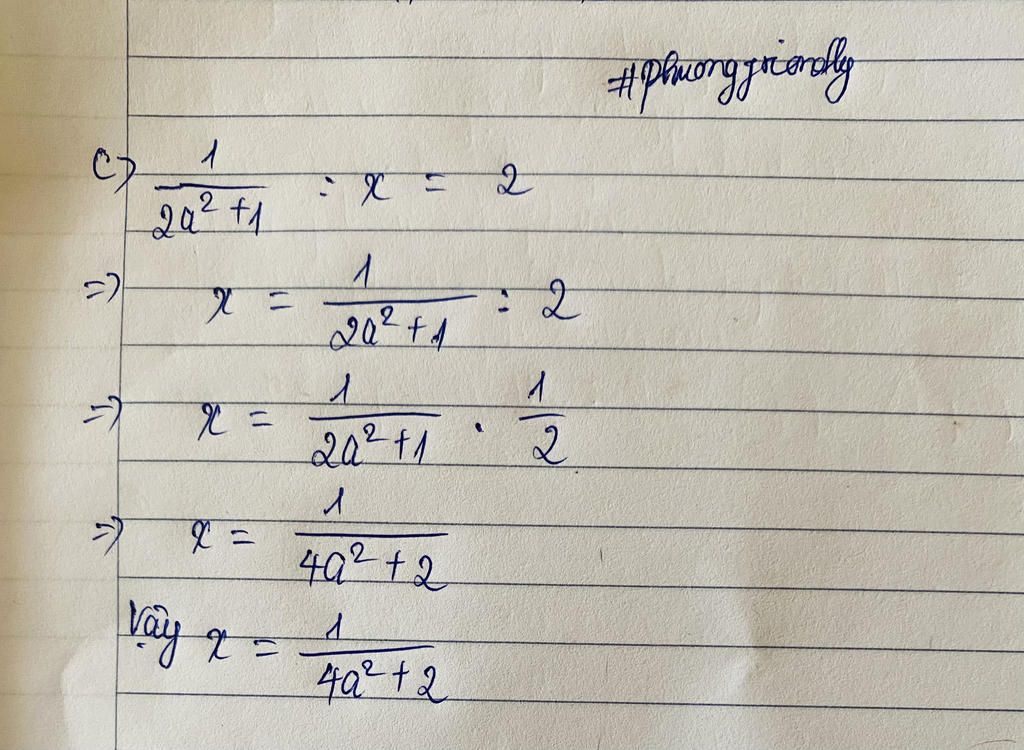 #phuongfriendly
c) 1/(2a²+1) : x = 2
=> x = 1/(2a²+1) : 2
=> x = 1/(2a²+1) . 1/2
=> x = 1/(4a²+2)
Vậy x = 1/(4a²+2)